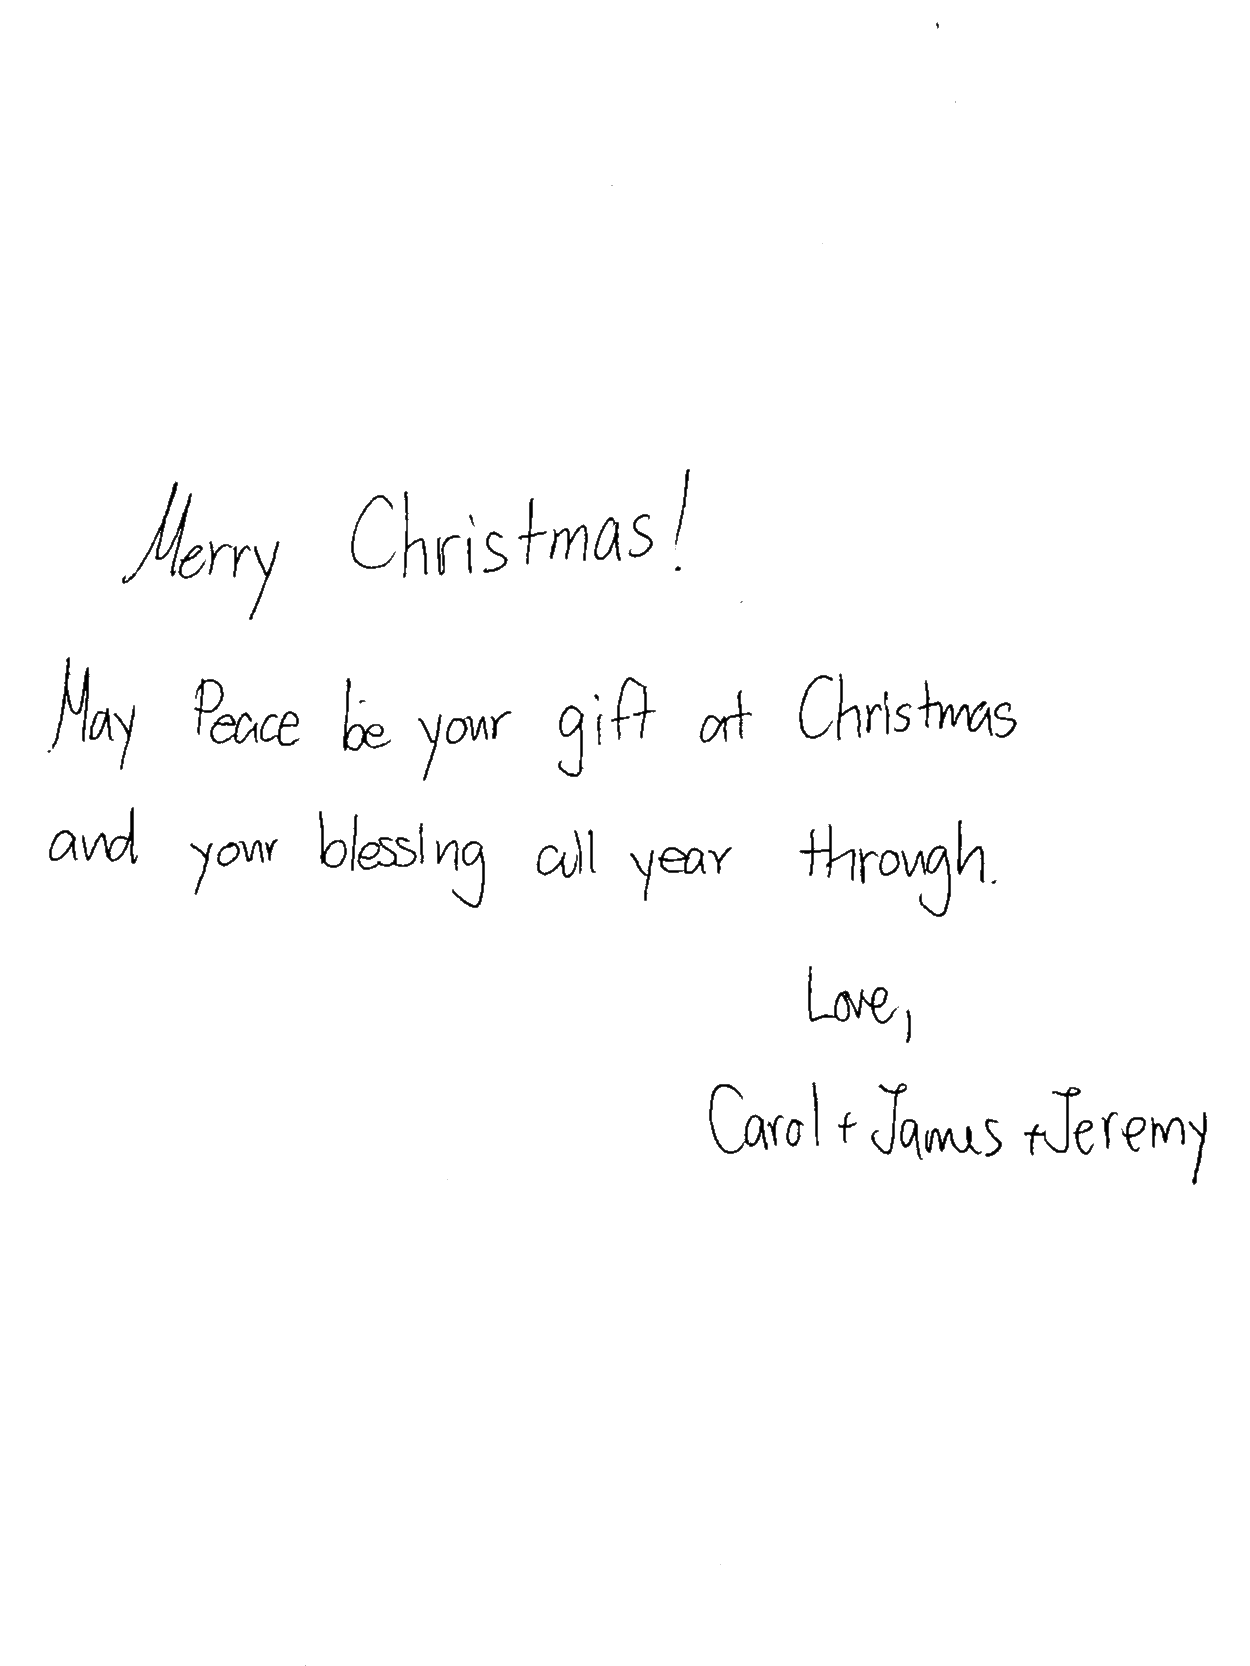 Merry Christmas!
May Peace be your gift at Christmas
and your blessing all year through.
Love,
Carol + James + Jeremy